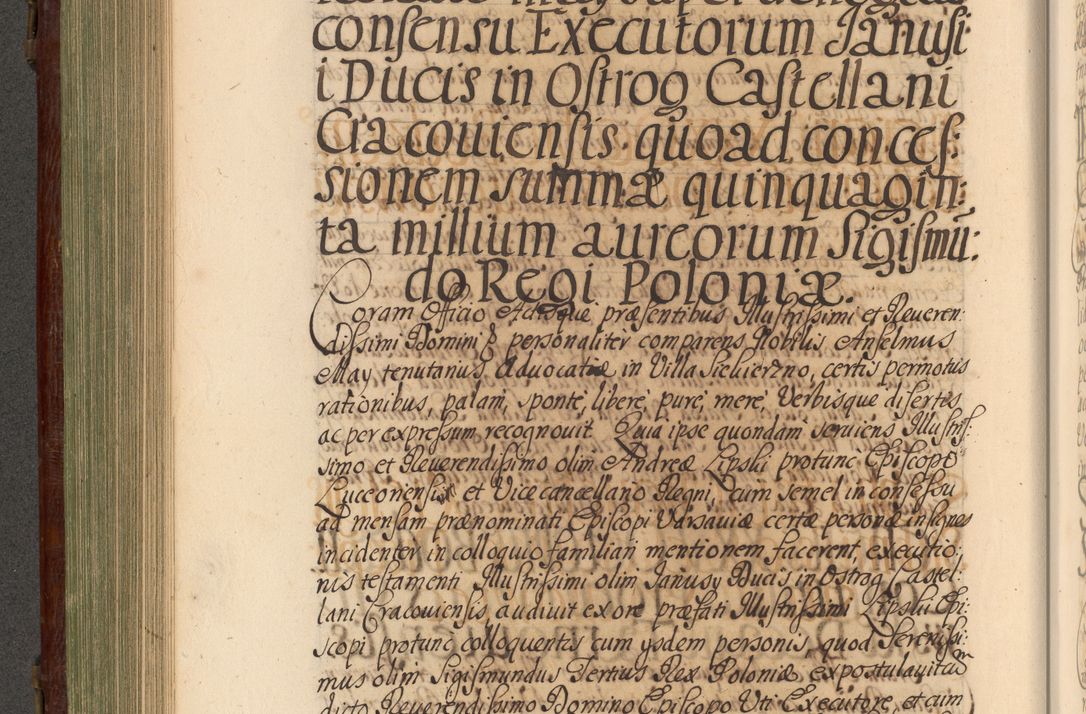 consensu Executorum Janusi:
i Ducis in Ostrog Castellani
Cracouiensis quoad conces:
sionem summæ quinquagin:
ta millium aureorum Sigismū:
do Regi Poloniæ.
Coram Officio Actisque præsentibus Illustrissimi et Reueren:
dissimi Domini personaliter comparens Nobilis Anselmus
May tenutarius Aduocatiæ in Villa Siekierzno, certis permotus
rationibus, palam, sponte, libere, pure, mere, Verbisque disertis
ac per expressum recognouit. Quia ipse quondam seruiens Illustris:
simo et Reuerendissimo olim Andreæ Lipski protunc Episcopo
Luceonensi et Vicecancellario Regni, cum semel in confessu
ad mensam prænominati Episcopi Varsauiæ certæ personæ insignes
incidenter in colloquio familiari mentionem facerent executio:
nis testamenti Illustrissimi olim Janusy Ducis in Ostrog Castel:
lani Cracouiensis, audiuit ex ore præfati Illustrissimi Lipski Epi:
scopi protunc colloquentis cum ysdem personis, quod Serenissi:
mus olim Sigismundus Tertius Rex Poloniæ expostulauit cum
dicto Reuerendissimo Domino Episcopo Uti Executore, et cum